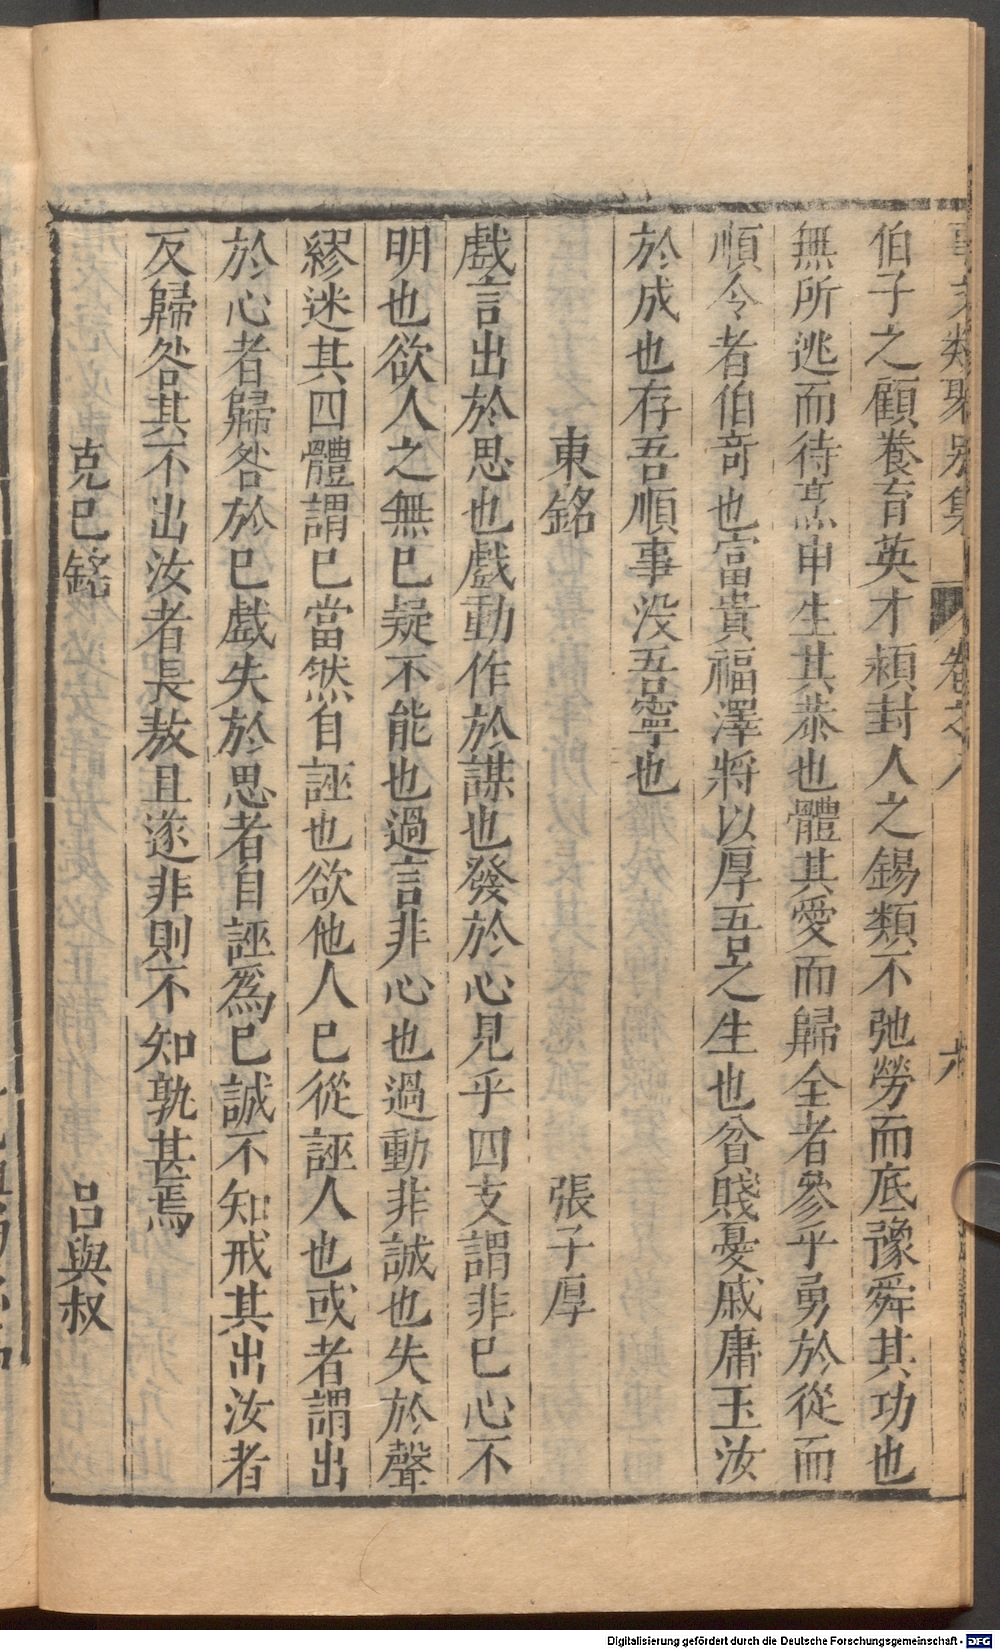 事文類聚別集 卷之八 六
伯子之顧養育英才潁封人之錫類不弛勞而底豫舜其功也
無所逃而待烹申生其恭也體其愛而歸全者參乎勇於從而
順令者伯奇也富貴福澤將以厚吾之生也貧賤憂戚庸玉汝
於成也存吾順事没吾寧也
東銘 張子厚
戲言出於思也戲動作於謀也發於心見乎四支謂非已心不
明也欲人之無已疑不能也過言非心也過動非誠也失於聲
繆迷其四體謂已當然自誣也欲他人已從誣人也或者謂出
於心者歸咎於已戲失於思者自誣爲已誠不知戒其出汝者
反歸咎其不出汝者長敖且遂非則不知孰甚焉
克已銘 吕與叔
Digitalisierung gefördert durch die Deutsche Forschungsgemeinschaft - DFG